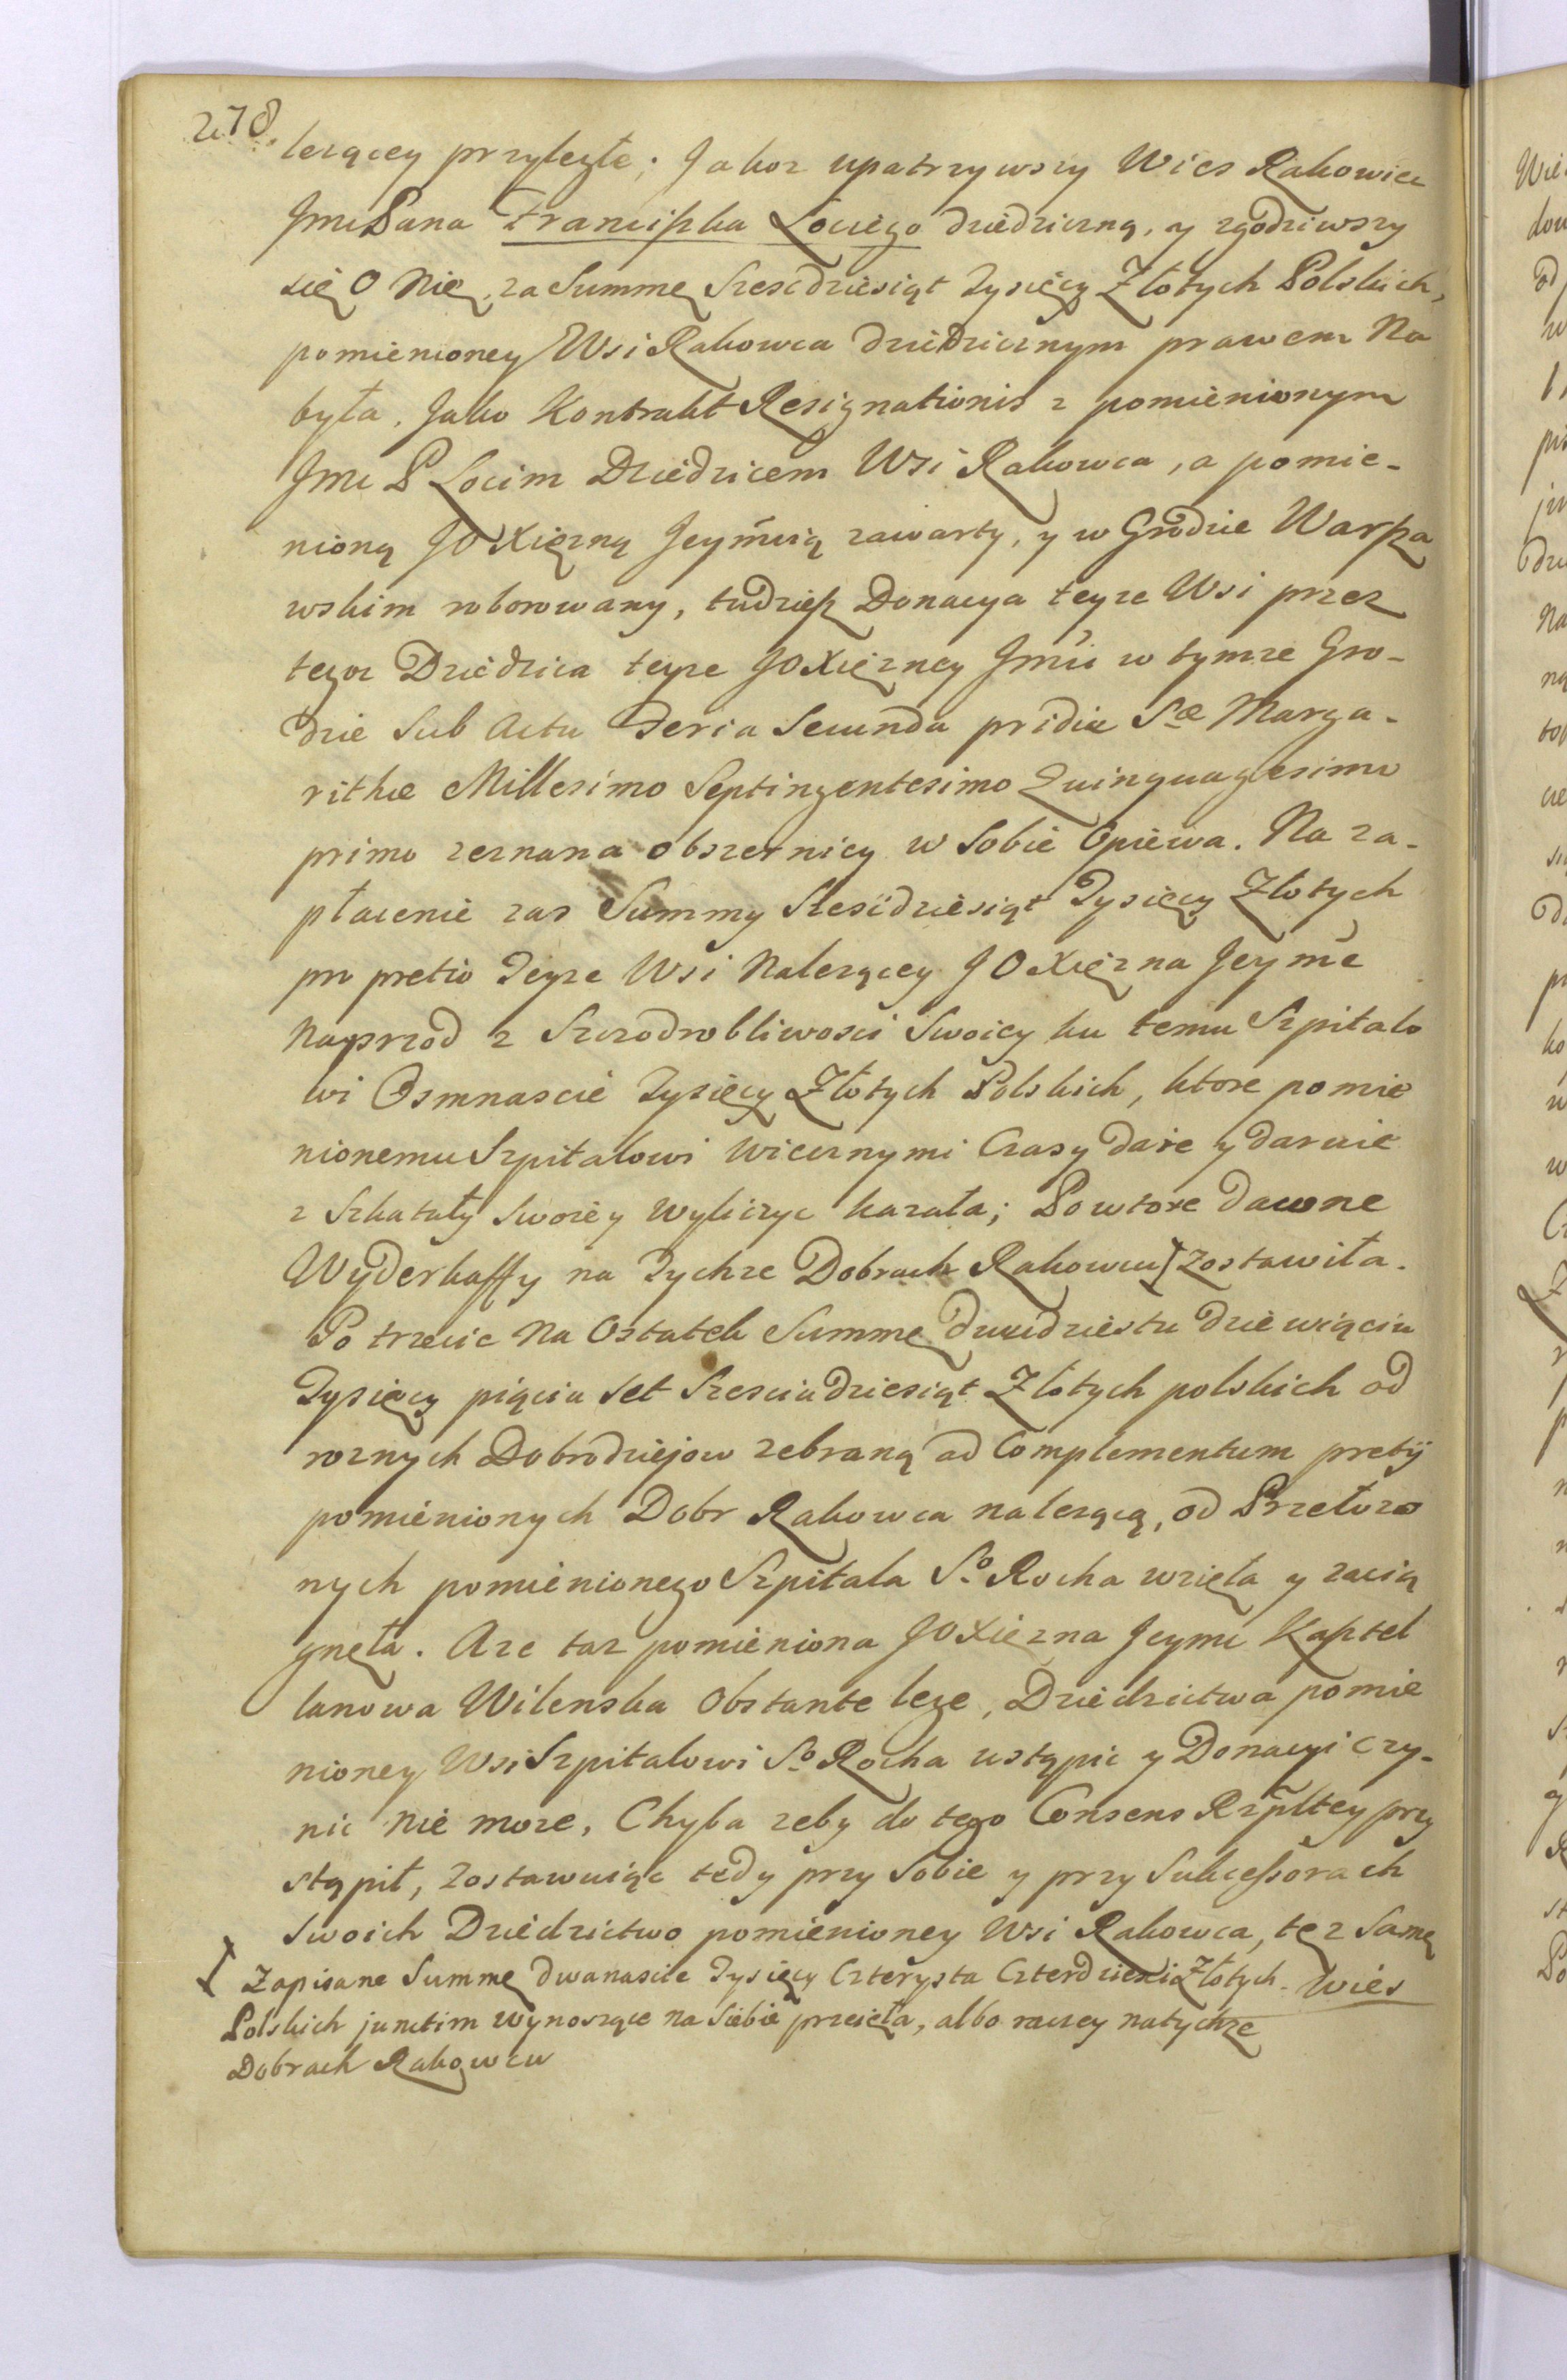 278.
lezącey przyległe; Jakoz upatrzywszy Wies Rakowiec
Jmci Pana Franciszka Łockiego dziedziczną, y zgodziwszy
się o Nię, za Summę Szescdziesiąt Tysięcy Złotych Polskich,
pomienioney Wsi Rakowca dziedzicznym prawem Na
była, Jako Kontrakt Resignationis z pomienionym
Jmc P Łocim Dziedzicem Wsi Rakowca, a pomie-
nioną JO Xiężną Jeymcią zawarty, y w Grodzie Warsza
wskim roborowany, tudziesz Donacya teyze Wsi przez
tegoz Dziedzica teyze JOXięzney Jmci w tymze Gro-
dzie Sub Actu Feria Secunda pridie Sæ Marga-
rithæ Millesimo Septingentesimo Quinquagesimo
primo zeznana obszerniey w Sobie Opiewa. Na za-
płacenie zas Summy Szescdziesiąt Tysięcy Złotych
pro pretio Teyze Wsi Nalezącey JO Xięzna Jeymc
Naprzod z Szczodrobliwosci Swoiey ku temu Szpitalo
wi Osmnascie Tysięcy Złotych Polskich, ktore pomie
nionemu Szpitalowi Wiecznymi Czasy daie y daruie
z Szkatuły Swoiey Wyliczyc kazała; Powtore dawne
Wyderkaffy na Tychze Dobrach Rakowcu] zostawiła.
Po trzecie Na Ostatek Summę dwudziestu dziewiąciu
Tysięcy piąciu Set Szesciudziesiąt Złotych polskich od
roznych Dobrodziejow zebraną ad Complementum pretij
pomienionych Dobr Rakowca nalezącą, od Przełozo
nych pomienionego Szpitala So Rocha wzięła y zacią
gnęła. Aze taz pomieniona JOXięzna Jeymc Kasztel
lanowa Wilenska Obstante lege, Dziedzictwa pomie
nioney Wsi Szpitalowi So Rocha ustąpic y Donacyi czy-
nic nie moze, Chyba zeby do tego Consens Rzpltey przy
stąpił, zostawuiąc tedy przy Sobie y przy Sukcessorach
Swoich Dziedzictwo pomienioney Wsi Rakowca, tęz Samę
Wies
[ Zapisane Summę dwanascie Tysięcy Czterysta Czterdziesci Złotych
Polskich junctim wynoszące na Siebie przeięła, albo raczey na tychze
Dobrach Rakowcu